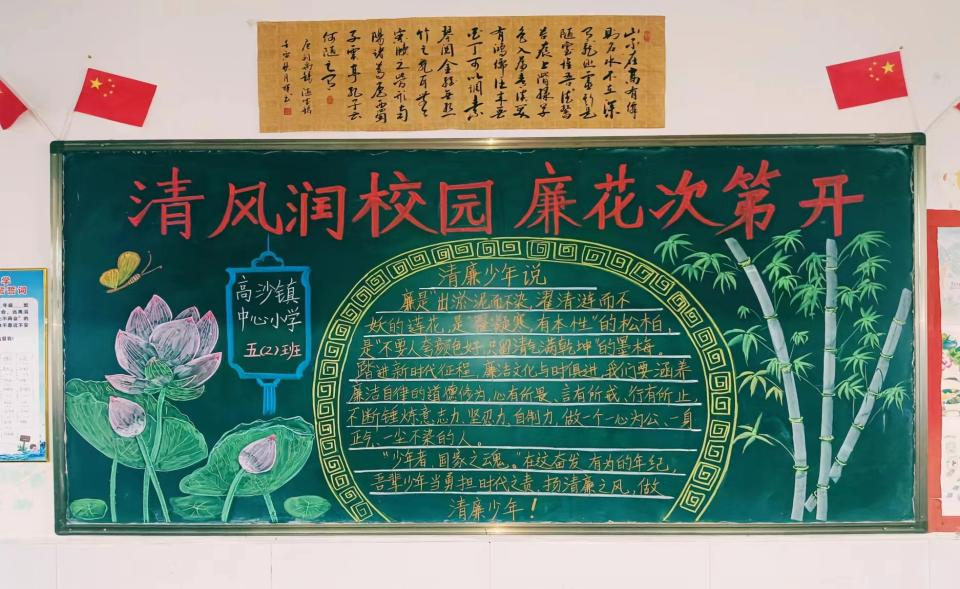 山不在高有僊
則名水不在深
有龍則靈斯是
陋室惟吾德馨
苔痕上階緑草
色入簾青談笑
有鴻儒往来無
白丁可以調素
琴閲金經無絲
竹之亂耳無
案牘之勞形南
陽諸葛廬西蜀
子雲亭孔子云
何陋之有
清风润校园 廉花次第开
高沙镇
中心小学
五(2)班
清廉少年说
廉是“出淤泥而不染,濯清涟而不
妖的莲花,是“罹凝寒,有本性”的松柏,
是“不要人夸颜色好,只留清气满乾坤”的墨梅。
踏进新时代征程,廉洁文化与时俱进,我们要涵养
廉洁自律的道德修为,心有所畏、言有所戒、行有所止,
不断锤炼意志力、坚忍力、自制力,做一个一心为公、一身
正气、一尘不染的人。
“少年者,国家之魂。”在这奋发有为的年纪,
吾辈少年当勇担时代之责,扬清廉之风,做
清廉少年!